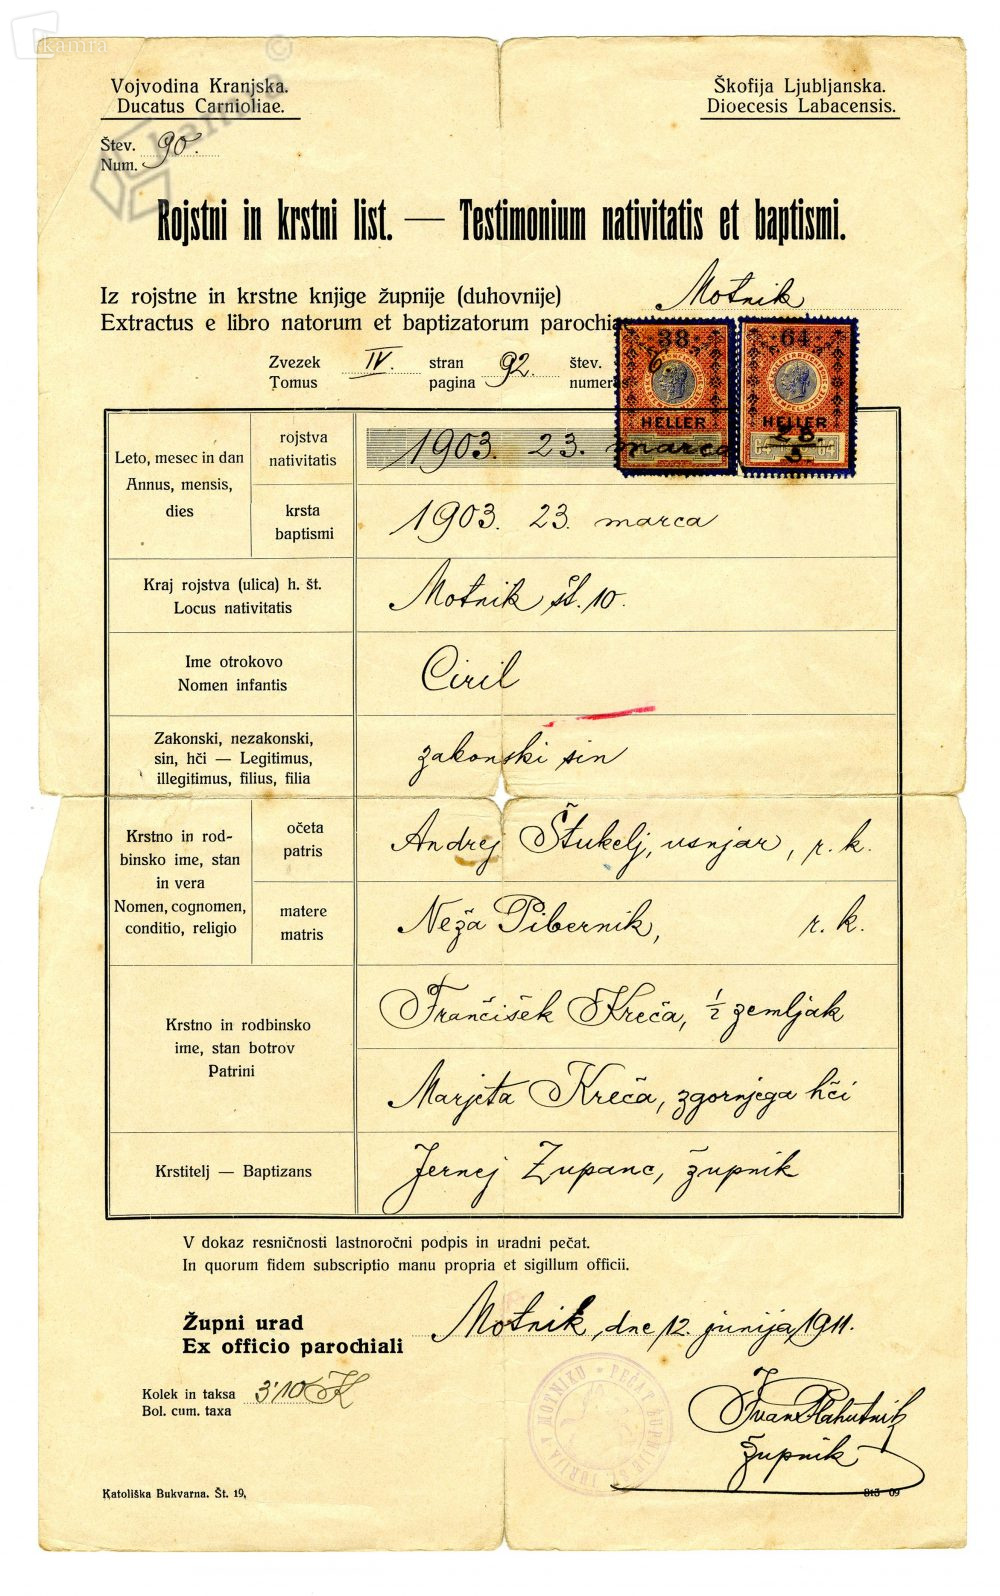 kamra
Vojvodina Kranjska.
Ducatus Carnioliae.
Škofija Ljubljanska.
Dioecesis Labacensis.
Štev. 90.
Num.
Rojstni in krstni list. — Testimonium nativitatis et baptismi.
Iz rojstne in krstne knjige župnije (duhovnije) Motnik
Extractus e libro natorum et baptizatorum parochiae
Zvezek IV. stran 92. štev.
Tomus pagina numerus
38 64
HELLER HELLER
64 64
28.
Leto, mesec in dan
Annus, mensis,
dies
rojstva
nativitatis
1903. 23. marca
krsta
baptismi
1903. 23. marca
Kraj rojstva (ulica) h. št.
Locus nativitatis
Motnik št. 10.
Ime otrokovo
Nomen infantis
Ciril
Zakonski, nezakonski,
sin, hči — Legitimus,
illegitimus, filius, filia
zakonski sin
Krstno in rod-
binsko ime, stan
in vera
Nomen, cognomen,
conditio, religio
očeta
patris
Andrej Štukelj, usnjar, r. k.
matere
matris
Neža Pibernik, r. k.
Krstno in rodbinsko
ime, stan botrov
Patrini
Frančišek Kreča, ½ zemljak
Marjeta Kreča, zgornjega hči
Krstitelj — Baptizans
Jernej Zupanc, župnik
V dokaz resničnosti lastnoročni podpis in uradni pečat.
In quorum fidem subscriptio manu propria et sigillum officii.
Župni urad
Ex officio parochiali
Motnik, dne 12. junija 1911.
Kolek in taksa 3'10 K
Bol. cum. taxa
PEČAT ŽUPNIJE SV. JURIJA V MOTNIKU
Ivan Plahutnik
župnik
Katoliška Bukvarna. Št. 19,